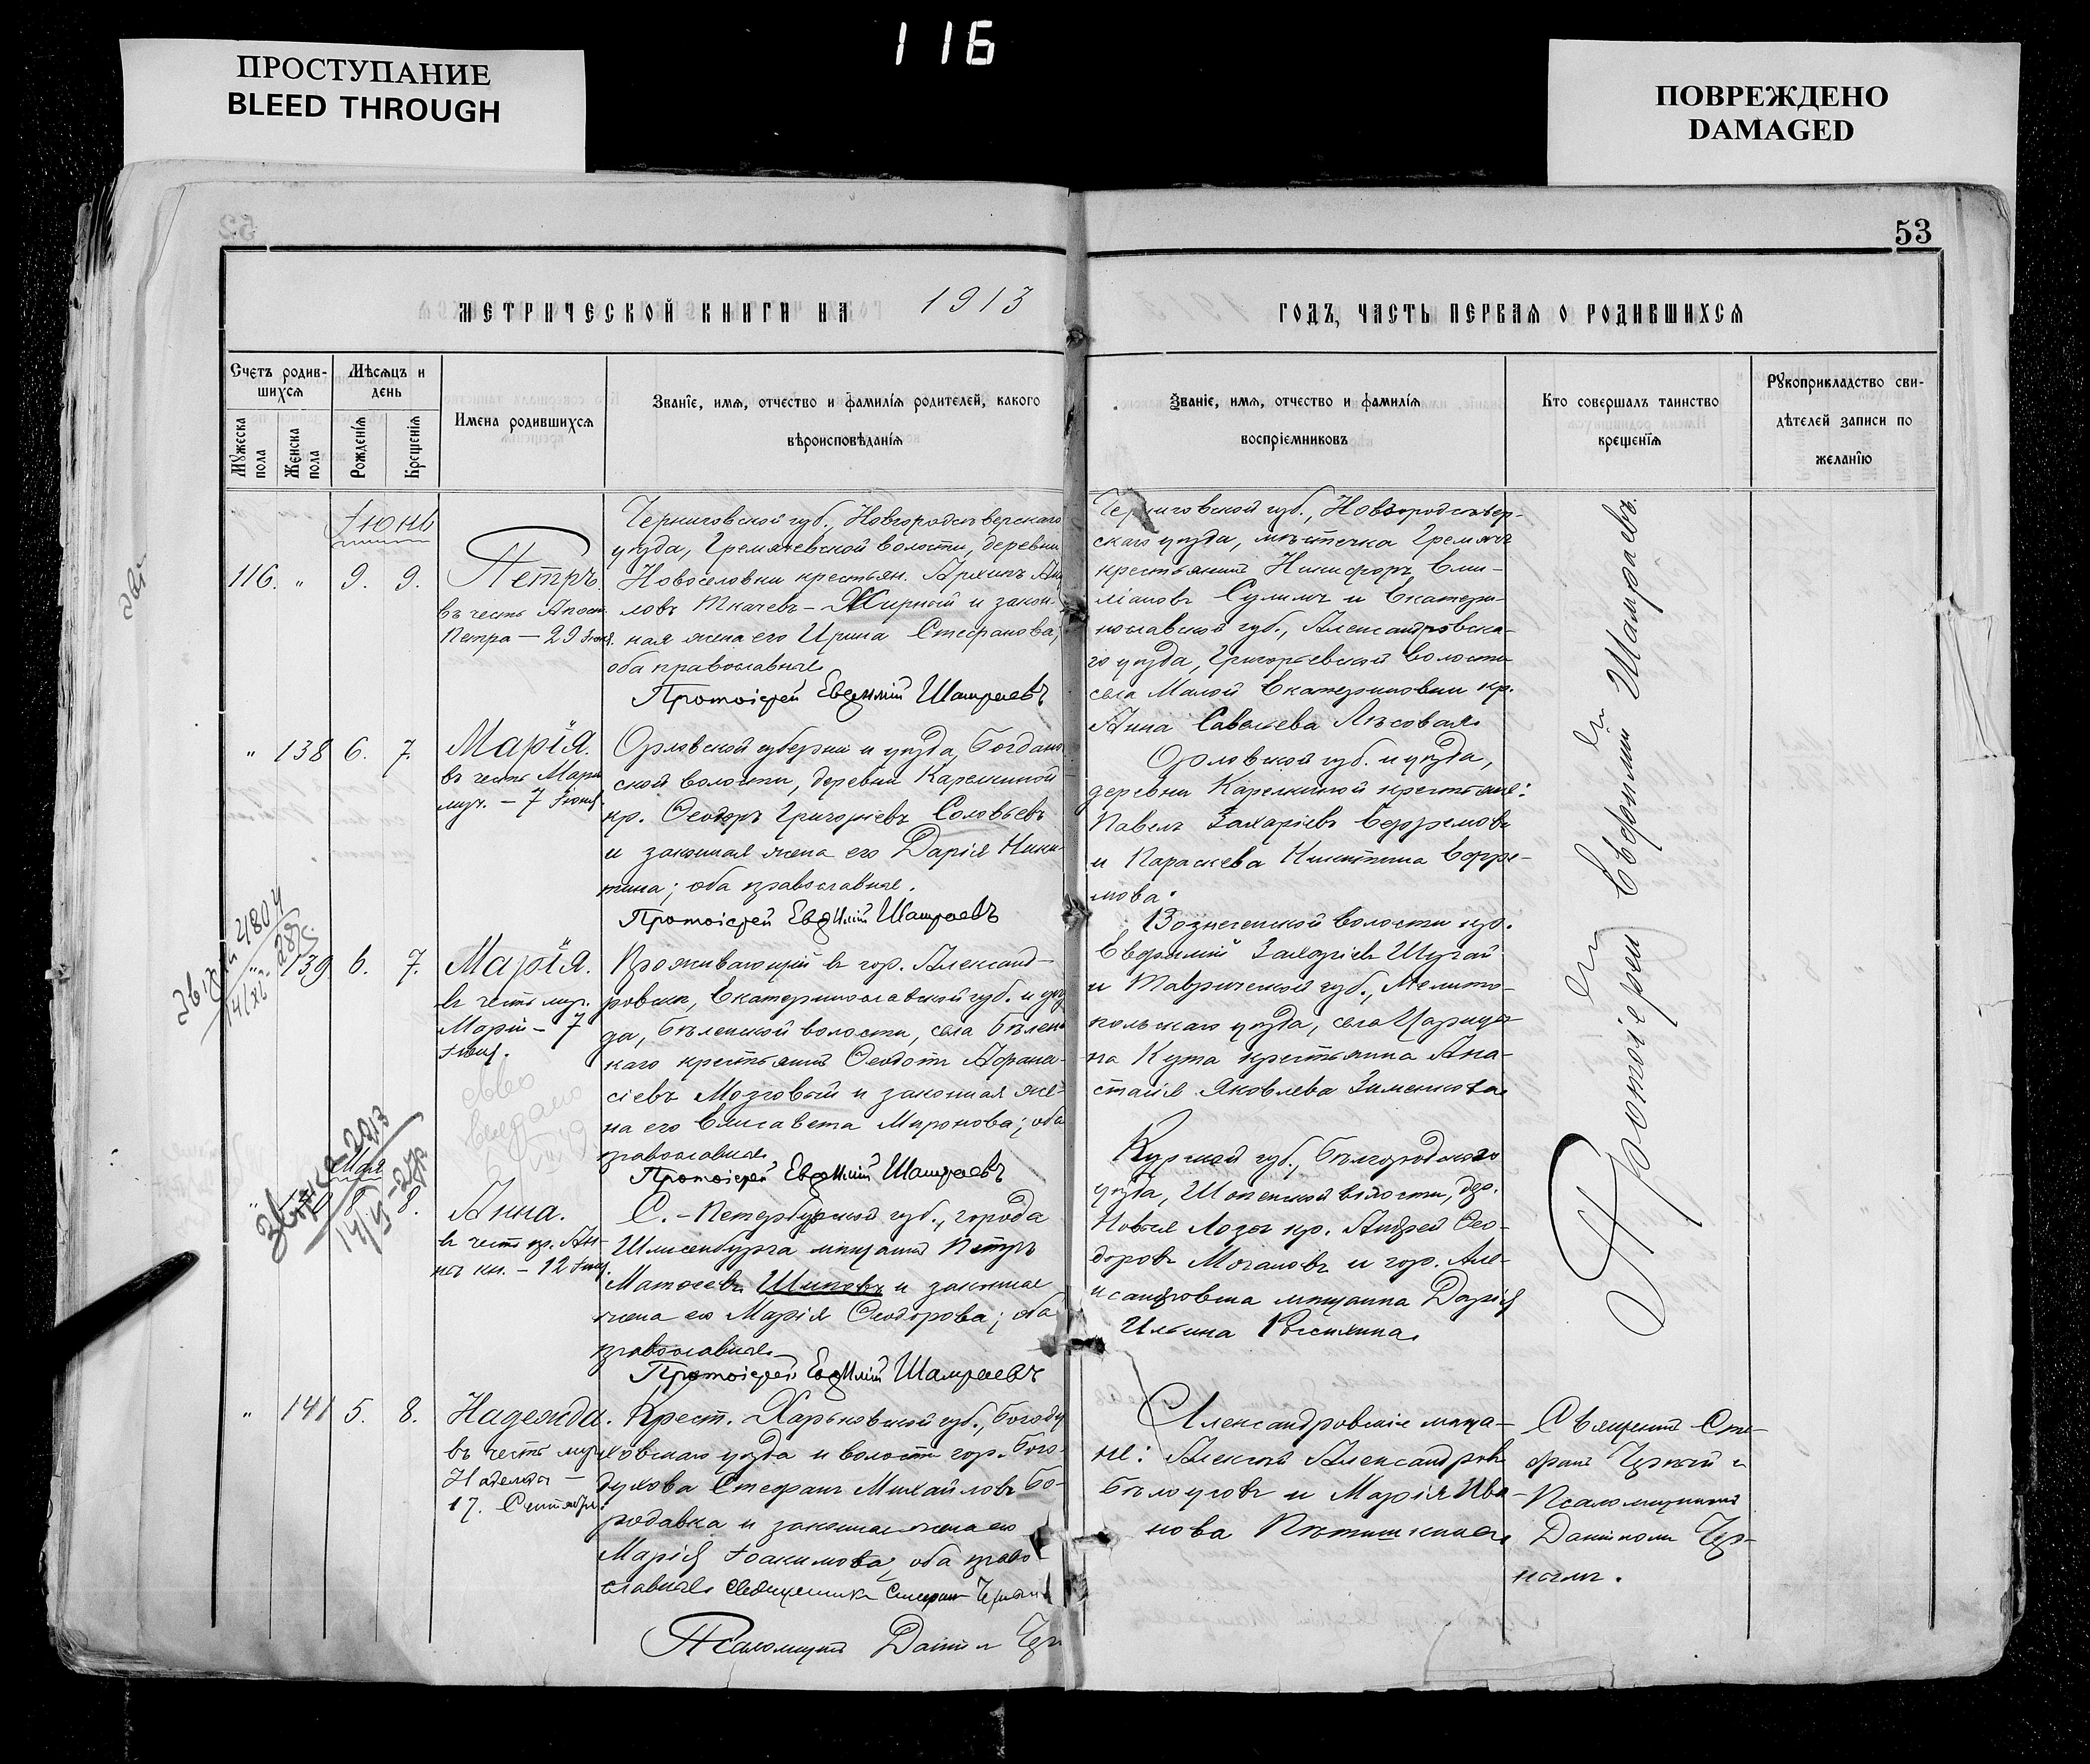 116
ПРОСТУПАНИЕ
BLEED THROUGH
ПОВРЕЖДЕНО
DAMAGED
53
МЕТРИЧЕСКОЙ КНИГИ НА 1913
ГОДЪ, ЧАСТЬ ПЕРВАЯ О РОДИВШИХСЯ
Счетъ родив-
шихся
Мѣсяцъ и
день
Мужеска
пола
Женска
пола
Рожденія
Крещенія
Имена родившихся
Званіе, имя, отчество и фамилія родителей, какого
вѣроисповѣданія
Званіе, имя, отчество и фамилія
воспріемниковъ
Кто совершалъ таинство
крещенія
Рукоприкладство сви-
дѣтелей записи по
желанію
Іюнь
116. " 9. 9.
Петръ
въ честь Апост.
Петра — 29 Іюня.
Черниговской губ., Новгородсѣверскаго
уѣзда, Гремячевской волости, деревни
Новоселовки крестьян. Архипъ
ловъ Ткачевъ – Жирный и закон-
ная жена его Ирина Стефанова,
оба православные
Протоіерей Евѳимій Шамраевъ
Черниговской губ., Новгородсѣвер-
скаго уѣзда, мѣстечка Гремячъ
крестьянинъ Никифоръ Еми-
ліановъ Сулимъ и Екатери-
нославской губ., Александровска-
го уѣзда, Григорьевской волости
села Малой Екатериновки кр.
Анна Савельева Лѣсовая
" 138 6. 7.
Марія.
въ честь Маріи
муч. – 7 Іюня.
Орловской губерніи и уѣзда, Богданов
ской волости, деревни Карелкиной
кр. Ѳеодоръ Григорьевъ Соловьевъ
и законная жена его Дарія Ники-
тина; оба православные.
Протоіерей Евѳимій Шамраевъ
Орловской губ. и уѣзда,
деревни Карелкиной крестьяне:
Павелъ Захаріевъ Ефремовъ
и Параскева Никитина Ефре-
мова.
139 6. 7.
Марія.
въ честь муч.
Маріи – 7
Іюня.
Проживающій въ гор. Александ-
ровскѣ, Екатеринославской губ. и уѣз
да, Бѣленской волости, села Бѣлень
каго крестьянинъ Ѳеодотъ Аѳана-
сіевъ Мозговый и законная же-
на его Елисавета Миронова; оба
православные.
Протоіерей Евѳимій Шамраевъ
Вознесенской волости кр.
Евфимій Захаріевъ Шугай
и Таврической губ., Мелито-
польскаго уѣзда, села Царицы-
на Кута крестьянина Ана-
стасія Яковлева Зименкова
Мая
8.
Анна.
въ честь пр. Ан-
ны кн. – 12 Іюн.
С.-Петербургской губ., города
Шлисельбурга мѣщанинъ Петръ
Матѳеевъ Шиповъ и законная
жена его Марія Ѳеодорова; оба
православные.
Протоіерей Евѳимій Шамраевъ
Курской губ., Бѣлгородскаго
уѣзда, Шопенской волости, дер.
Новыя Лозы кр. Андрей Ѳео-
доровъ Могановъ и гор. Але-
ксандровска мѣщанка Дарія
Ильина
" 141 5. 8.
Надежда.
въ честь муч.
Надежды –
17. Сентября.
Крест. Харьковской губ., Богоду
ховскаго уѣзда и волости гор. Бого-
духова Стефанъ Михайловъ Бо-
родавка и законная жена его
Марія Іоакимова, оба право-
славные. Священникъ Стефанъ Черный
Псаломщикъ Даніилъ Чер
Александровскіе мѣща-
не: Алексѣй Александровъ
Бѣлоусовъ и Марія Ива-
нова Пѣтишкина
Протоіерей Евфимій Шамраевъ
Священникъ Сте-
фанъ Черный съ
Псаломщикомъ
Даніиломъ Чер-
нымъ.